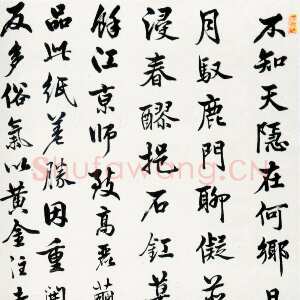 不知天隐在何鄉且
月馭鹿門聊儗
浸春醪挹石缸莫
餘江京師致高麗繭
品此紙差勝因重
反多俗氣以黄金注
Shufawang.CN